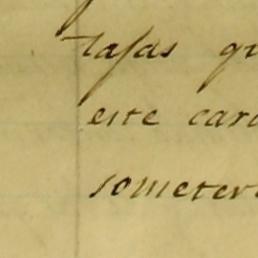 tasas qu
este caro
someter